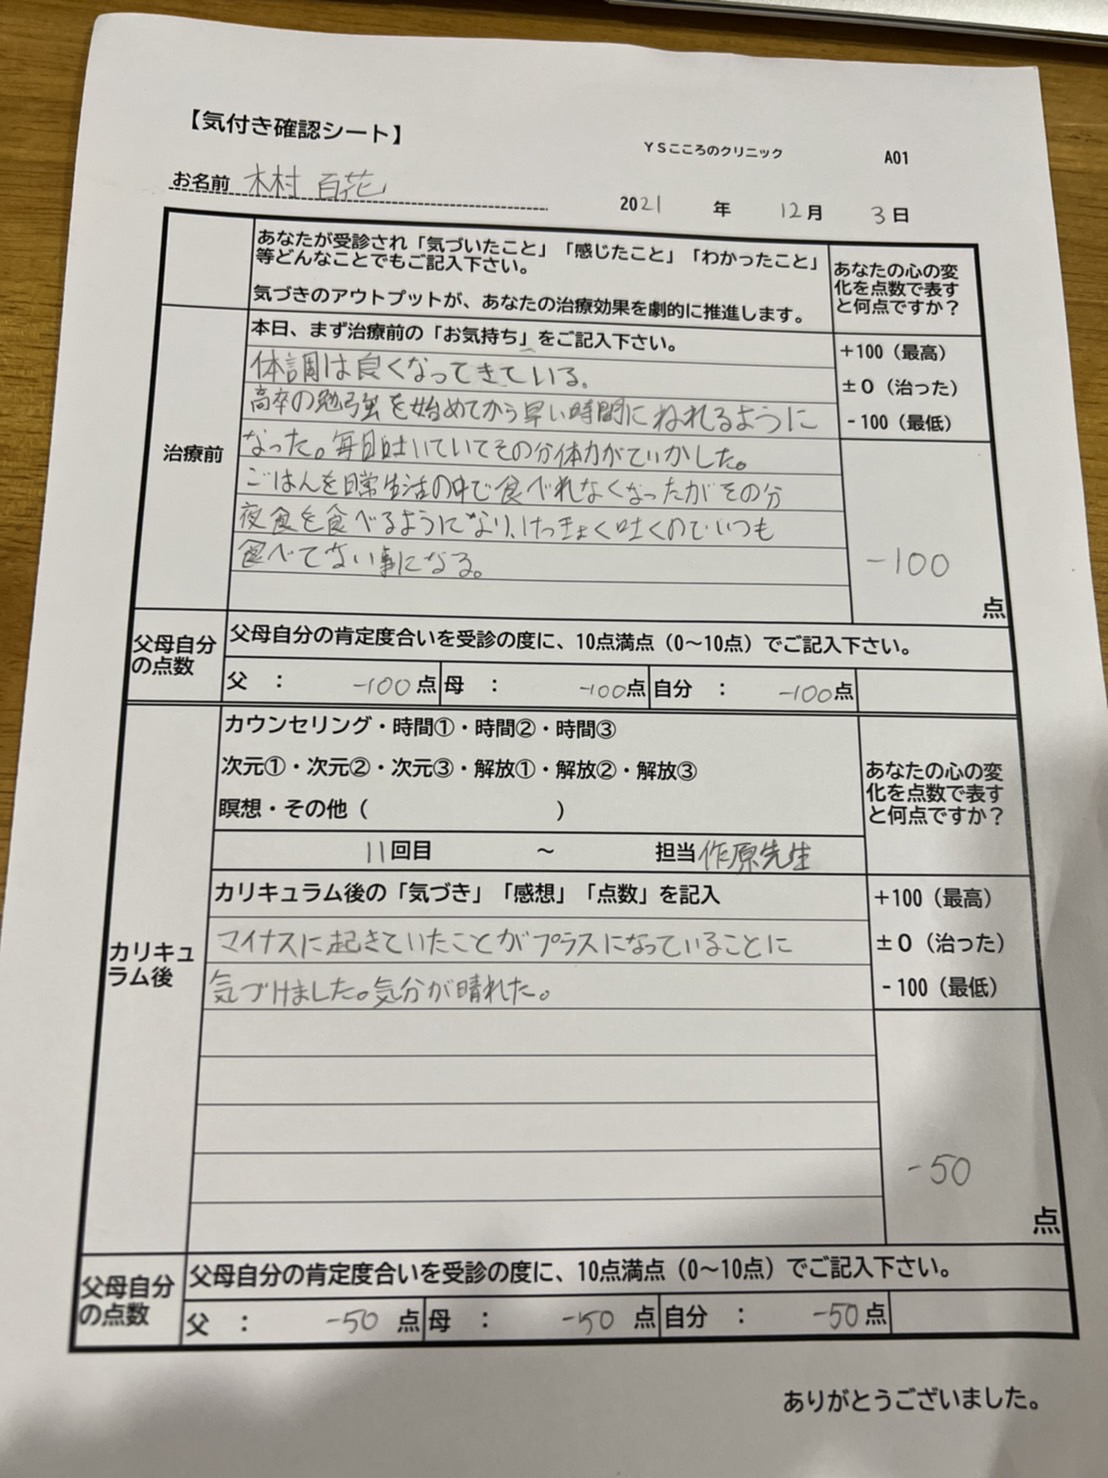 【気付き確認シート】
YSこころのクリニック
A01
お名前 木村 百花
2021 年 12月 3日
あなたが受診され「気づいたこと」「感じたこと」「わかったこと」
等どんなことでもご記入下さい。
気づきのアウトプットが、あなたの治療効果を劇的に推進します。
あなたの心の変
化を点数で表す
と何点ですか？
治療前
本日、まず治療前の「お気持ち」をご記入下さい。
体調は良くなってきている。
高卒の勉強を始めてから早い時間にねれるように
なった。毎日吐いていてその分体力がていかした。
ごはんを日常生活の中で食べれなくなったがその分
夜食を食べるようになり、けっきょく吐くのでいつも
食べてない事になる。
+100（最高）
±0（治った）
-100（最低）
-100
点
父母自分
の点数
父母自分の肯定度合いを受診の度に、10点満点（0～10点）でご記入下さい。
父 ： -100点 母 ： -100点 自分 ： -100点
カリキュ
ラム後
カウンセリング・時間①・時間②・時間③
次元①・次元②・次元③・解放①・解放②・解放③
瞑想・その他（ ）
11回目 ～ 担当 作原先生
あなたの心の変
化を点数で表す
と何点ですか？
カリキュラム後の「気づき」「感想」「点数」を記入
マイナスに起きていたことがプラスになっていることに
気づけました。気分が晴れた。
+100（最高）
±0（治った）
-100（最低）
-50
点
父母自分
の点数
父母自分の肯定度合いを受診の度に、10点満点（0～10点）でご記入下さい。
父 ： -50 点 母 ： -50 点 自分 ： -50点
ありがとうございました。